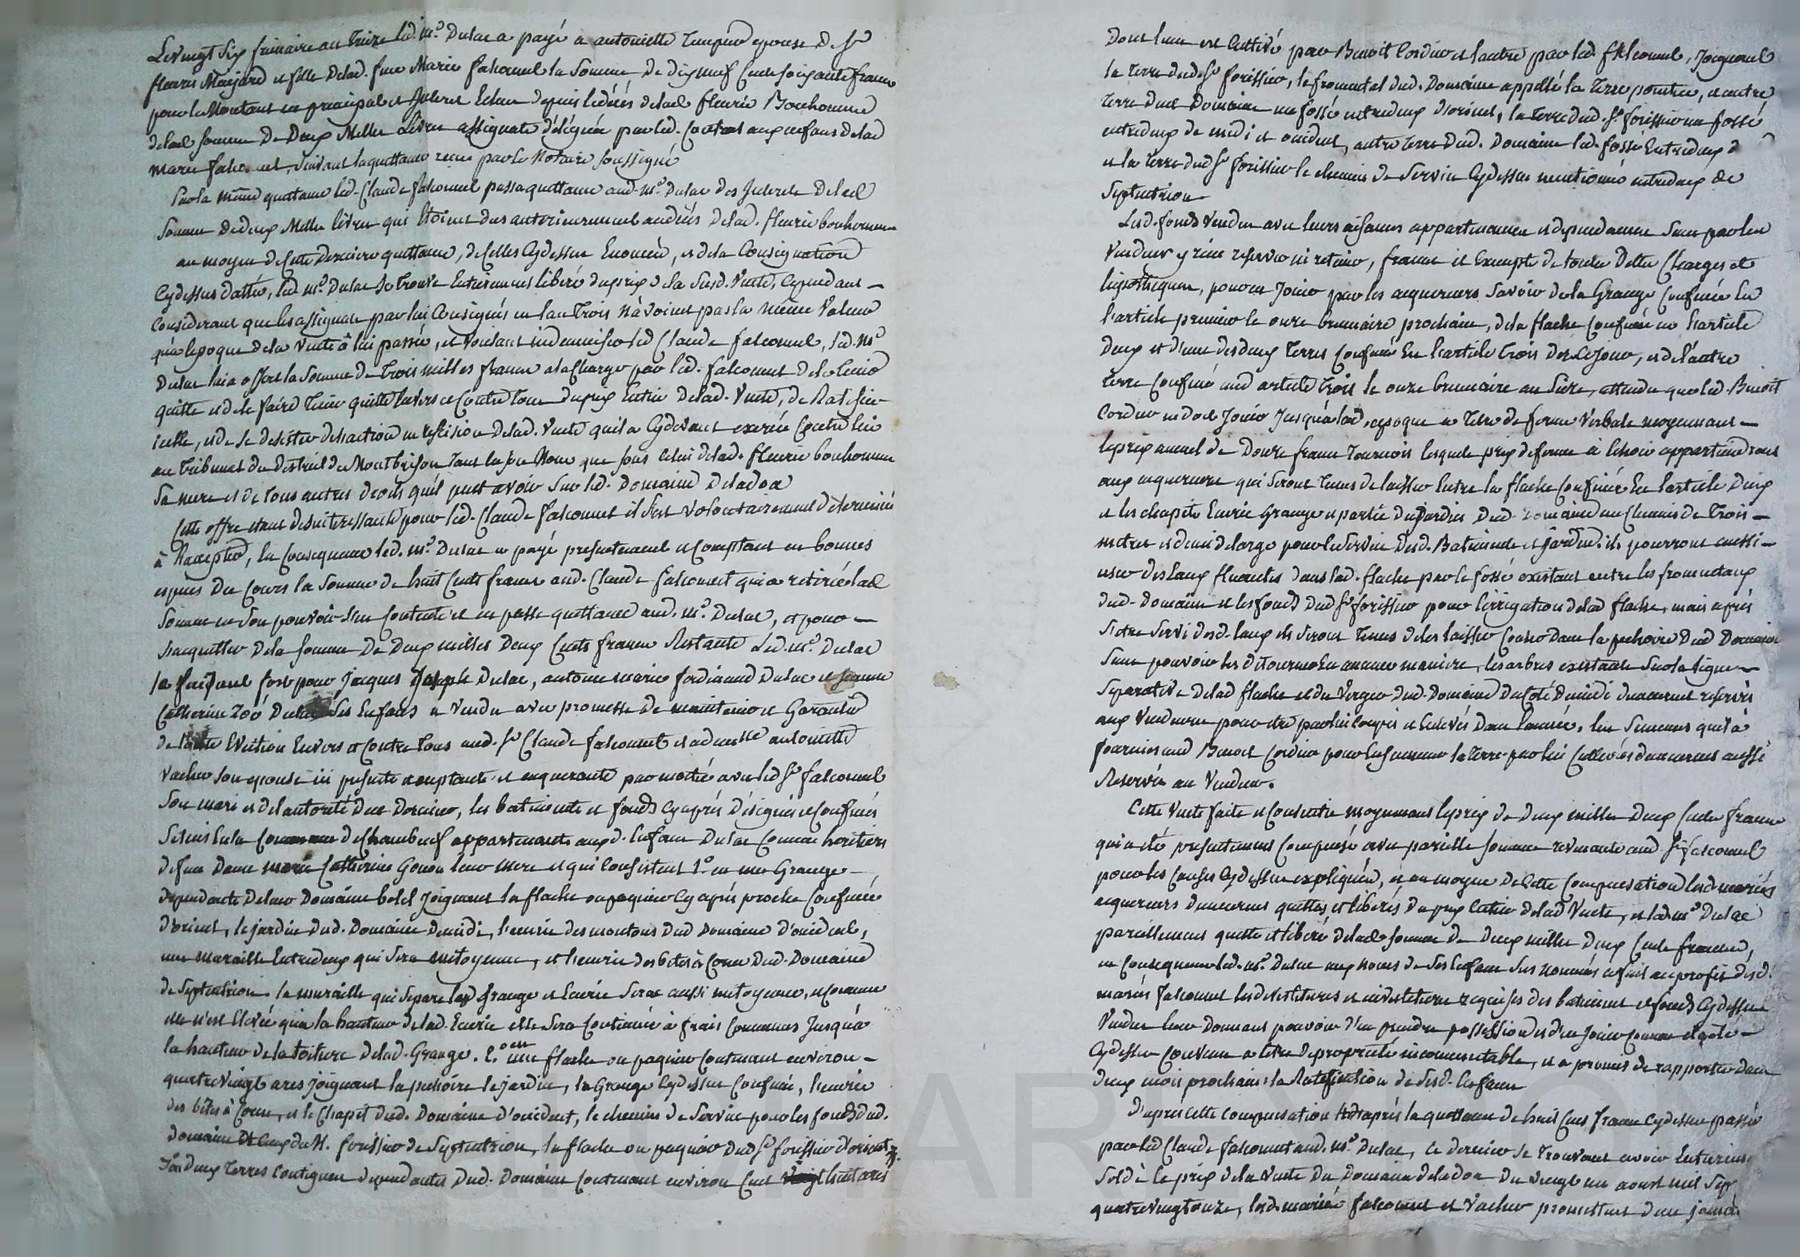 Le vingt six frimaire an treize led. m.e Dulac a payé a antoinette epouse de Sr
fleurie Margard et fille delad. feue Marie falconnet la somme de dix neuf Cents soixante francs
pour le Montant en principal et Interet Echus depuis ledécés delad fleurie Bonhomme
delad somme De Deux Mille Livres assignats déléguée par led. aux enfans delad
marie falconnet, suivant la quittance recue par le Notaire soussigné
Par la même quittance led. Claude falconnet passa quittance aud. m.e Dulac des Interets Delad
somme de deux Mille livres qui Etoient dus anterieurement audécés delad. fleurie bonhomme
au moyen de Cette Derniere quittance, de Celles Cydessus Enoncées, et de la Consignation
Cydessus dattée, led. m.e Dulac se trouve Entierement libéré du prix de la susd. Vente, Cependant
Considerant que les assignats par lui Consignés en l'an Trois n'avoient pas la même Valeur
qu'a l'epoque de la Vente à lui passée, et voulant indemniser led Claude falconnet, led. m.e
Dulac lui a offert la somme de Trois milles francs a la Charge par led. falconnet de le tenir
quitte et de le faire tenir quitte Envers et Contre tous du prix Entier delad. Vente, de Ratifier
icelle, et de se desister de l'action en rescision delad. Vente qu'il a Cydevant exercée Contre lui
au Tribunal du District de Montbrison tant En son Nom que sous Celui delad. fleurie bonhomme
sa mere et de tous autres droits qu'il peut avoir sur led. Domaine Deladoa
Cette offre etant desinteressante pour led. Claude falconnet il s'est volontairement déterminé
à l'accepter, En Consequence led. m.e Dulac a payé presentement et Comptant en bonnes
especes Du Cours la somme de huit Cents francs aud. Claude falconnet qui a retiré lad
somme en son pouvoir s'en Contente et en passe quittance aud. m.e Dulac, et pour
s'acquitter De la somme De Deux milles Deux Cents francs Restante Led. m.e Dulac
se faisant fort pour Jacques Joseph Dulac, antoine marie ferdinand Dulac et Jeanne
Catherine Zoé Dulac ses Enfans a Vendu avec promesse De maintenir et Garantir
de toute Eviction Envers et Contre tous aud. Sr Claude falconnet et a demoiselle antoinette
Vacher son epouse ici presente acceptante et acquerante par moitié avec led Sr falconnet
son mari et de l'autorité Duc Dernier, les batiments et fonds cyaprés Désignés et Confinés
situés En la Commune de Chambeuf appartenants auxd. Enfans Dulac Comme heritiers
de feue Dame marie Catherine Gonon leur mere et qui Consistent 1.o en une Grange
Dependante Delour Domaine bolel Joignant la flache ou paquier Cy aprés procha Confinée
D'orient, le jardin Dud. Domaine De midi, l'ecurie des moutons Dud Domaine D'occident,
une muraille Entredeux qui sera mitoyenne, et l'ecurie des bêtes à Corne Dud. Domaine
de septentrion. la muraille qui separe lad grange et Ecurie sera aussi mitoyenne, et comme
elle n'est Elevée qu'a la hauteur delad. Ecurie elle sera Continuée à frais Communs Jusqu'à
la hauteur de la toiture delad. Grange. 2.o une flache ou paquier Contenant environ
quatre vingt ares joignant la pechoire le jardin, la Grange Cydessus Confinée, l'ecurie
des bêtes à Corne, et le Chapit Dud. Domaine D'occident, le chemin de service pour les fonds Dud.
Domaine du H. forissier de septentrion, la flache ou paquier Dud Sr forissier d'orient
3.o Deux Terres Contigues dependantes Dud. Domaine Contenant environ Cent huit ares
Dont l'une est Cultivé par Benoit Cordier et l'autre par led. falconnet, Joignant
la terre dud. Sr forissier, le fromental dud. Domaine appellé la terre pointue, et autre
terre dud Domaine un fossé entredeux d'orient, la terre dud. Sr forissier un fossé
entredeux de midi et occident, autre terre Dud. Domaine led. fossé Entredeux
et la terre dud Sr forissier le chemin de service Cydessus mentionné entredeux de
Septentrion
Lesd. fonds Vendus avec leurs aisances appartenances et dependances sans par led
Vendeur y rien reserver ni retenir, francs et Exempts de toutes Dettes Charges et
hipotheques, pour en Jouir par les acquereurs savoir de la Grange Confinée En
l'article premier le onze brumaire prochain, de la flache Confinée en l'article
Deux et d'une des deux terres Confinée En l'article trois dés Cejour, et de l'autre
terre Confinée aud article trois le onze brumaire an seize, attendu que led Benoit
Cordier en doit Jouir Jusqu'à lad. epoque a titre de ferme Verbale moyennant
le prix annuel de Douze francs Tournois lequel prix de ferme à Echoir appartiendront
aux acquereurs qui seront tenus de laisser Entre la flache Confinée En l'article Deux
et les chapits Ecurie Grange et partie du Jardin Dud. Domaine un Chemin de Trois
metres et demi de large pour le service Desd. Batiments et jardin ils pourront aussi
user des Eaux fluantes dans lad. flache par le fossé existant entre les fromentaux
dud. Domaine et les fonds Dud Sr forissier pour l'irrigation delad flache, mais aprés
s'etre servi desd. Eaux ils seront tenus de les laisser Couler Dans la pechoire Dud Domaine
sans pouvoir les détourner En aucune maniere, les arbres existants sur la ligne
separative delad flache et du Verger Dud. Domaine Du Coté de midi demeurent reservés
aux Vendeurs pour etre par lui Coupés et Enlevés Dans l'année, les semences qu'il a
fournies aud Benoit Cordier pour Ensemencer la terre par lui Cultivée demeurent aussi
Reservées au Vendeur.
Cette Vente faite et Consentie moyennant le prix de deux milles Deux Cents francs
qui a eté presentement Compensé avec pareille somme revenante aud. Sr falconnet
pour les Causes Cydessus expliquées, et au moyen de Cette Compensation lesd mariés
acquereurs demeurent quittes et libérés Du prix Entier delad Vente, et led m.e Dulac
pareillement quitte et libéré delad somme de Deux milles Deux Cents francs,
en Consequence led. m.e Dulac aux noms de ses Enfans sus nommés a fait au profit desd.
mariés falconnet les devestitures et investitures requises des batiments et fonds Cydessus
Vendus leur donnant pouvoir d'en prendre possession et d'en Jouir comme Est dit
Cydessus Convenu a titre de propriété incommutable, et a promis de rapporter dans
deux mois prochains la Ratification de sesd. Enfans
D'aprés Cette Compensation et aprés la quittance de huit Cens francs Cydessus passée
par led Claude falconnet aud. m.e Dulac, ce dernier se trouvant avoir Entierement
soldé le prix de la Vente du Domaine deladoa Du vingt un aoust mil sept
quatrevingt onze, lesd. mariés falconnet et Vacher promettent de ne jamais